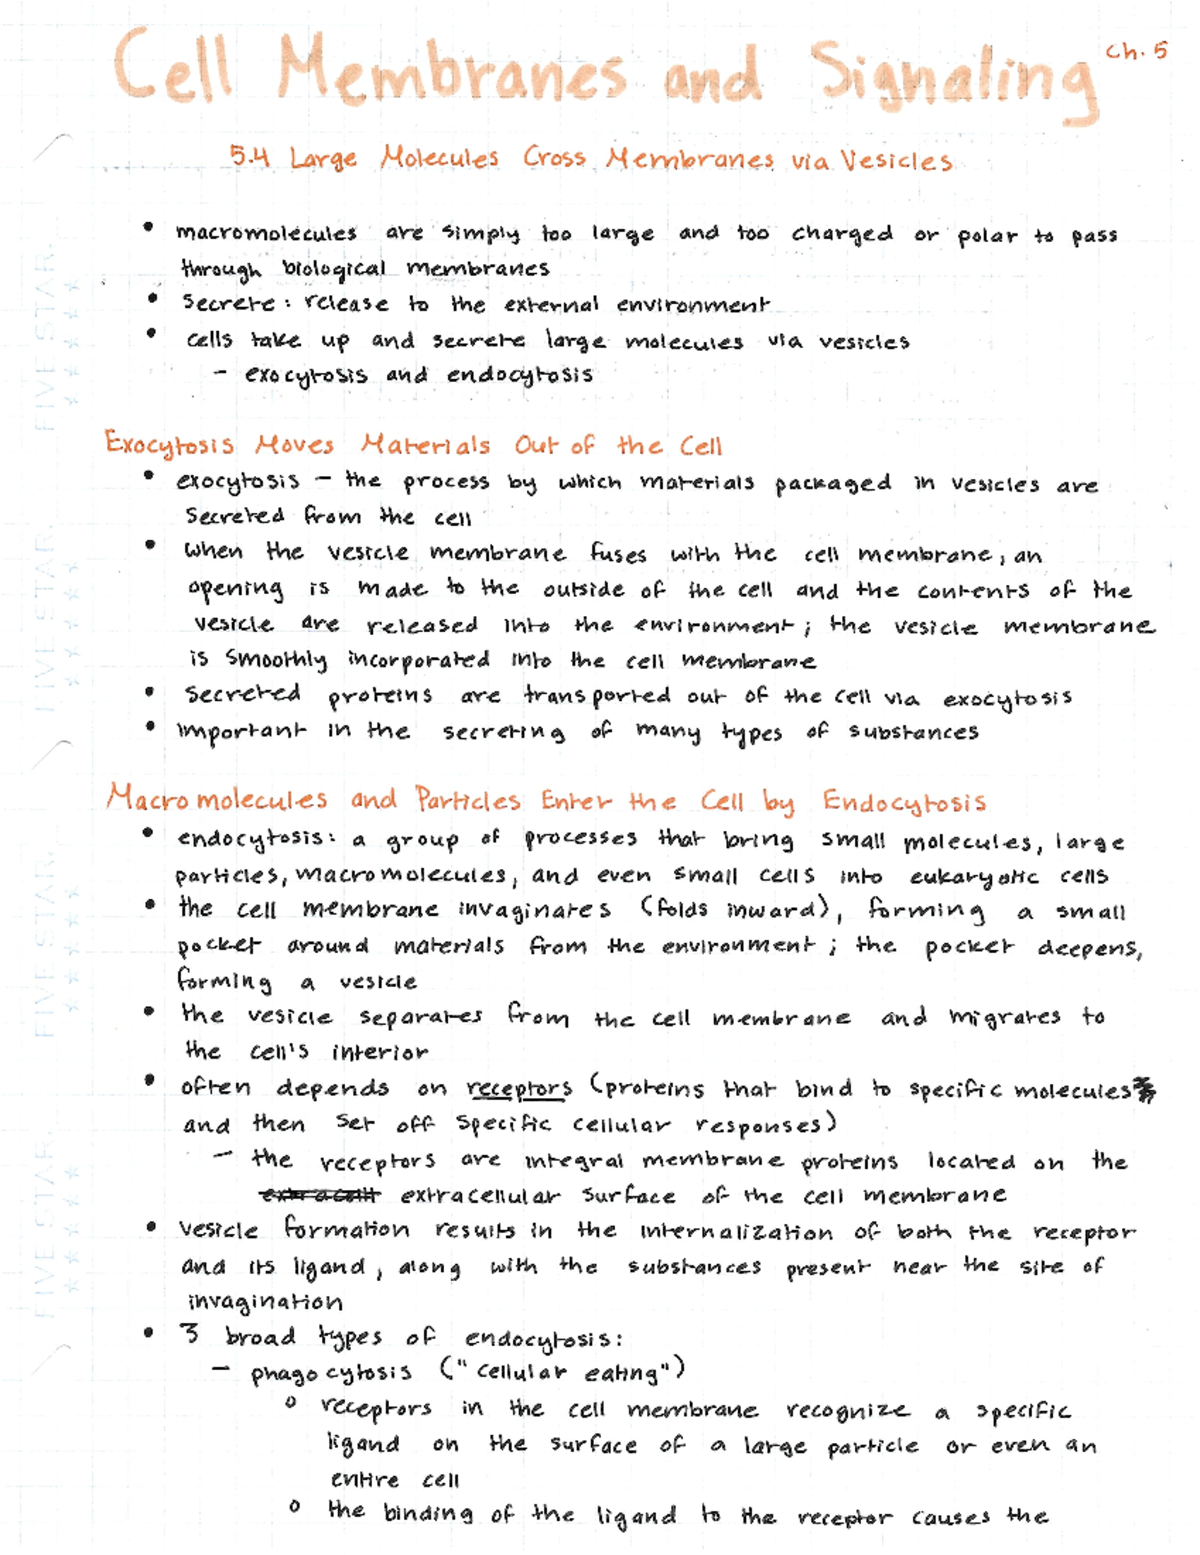 Cell Membranes and Signaling
Ch. 5
5.4 Large Molecules Cross Membranes via Vesicles
• macromolecules are simply too large and too charged or polar to pass
through biological membranes
• secrete: release to the external environment
• cells take up and secrete large molecules via vesicles
- exocytosis and endocytosis
Exocytosis Moves Materials Out of the Cell
• exocytosis – the process by which materials packaged in vesicles are
secreted from the cell
• when the vesicle membrane fuses with the cell membrane, an
opening is made to the outside of the cell and the contents of the
vesicle are released into the environment; the vesicle membrane
is smoothly incorporated into the cell membrane
• secreted proteins are transported out of the cell via exocytosis
• important in the secreting of many types of substances
Macromolecules and Particles Enter the Cell by Endocytosis
• endocytosis: a group of processes that bring small molecules, large
particles, macromolecules, and even small cells into eukaryotic cells
• the cell membrane invaginates (folds inward), forming a small
pocket around materials from the environment; the pocket deepens,
forming a vesicle
• the vesicle separates from the cell membrane and migrates to
the cell's interior
• often depends on receptors (proteins that bind to specific molecules
and then set off specific cellular responses)
- the receptors are integral membrane proteins located on the
extracellular surface of the cell membrane
• vesicle formation results in the internalization of both the receptor
and its ligand, along with the substances present near the site of
invagination
• 3 broad types of endocytosis:
- phagocytosis ("cellular eating")
o receptors in the cell membrane recognize a specific
ligand on the surface of a large particle or even an
entire cell
o the binding of the ligand to the receptor causes the
FIVE STAR.
FIVE STAR.
FIVE STAR.
FIVE STAR.